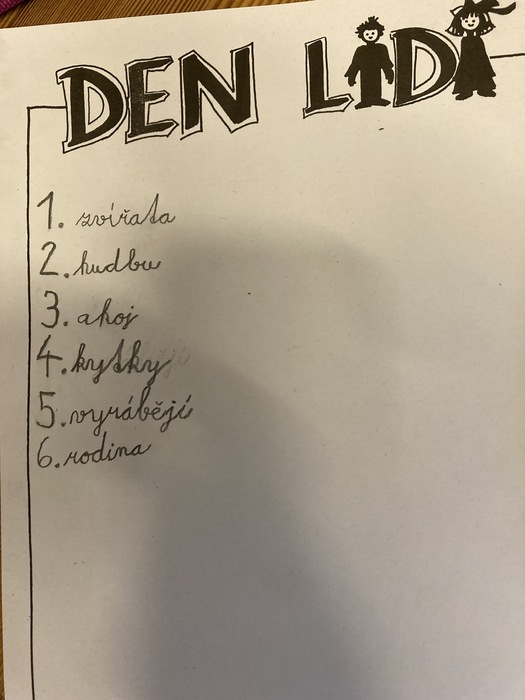 DEN LIDÍ
1. zvířata
2. hudbu
3. ahoj
4. kytky
5. vyrábějí
6. rodina